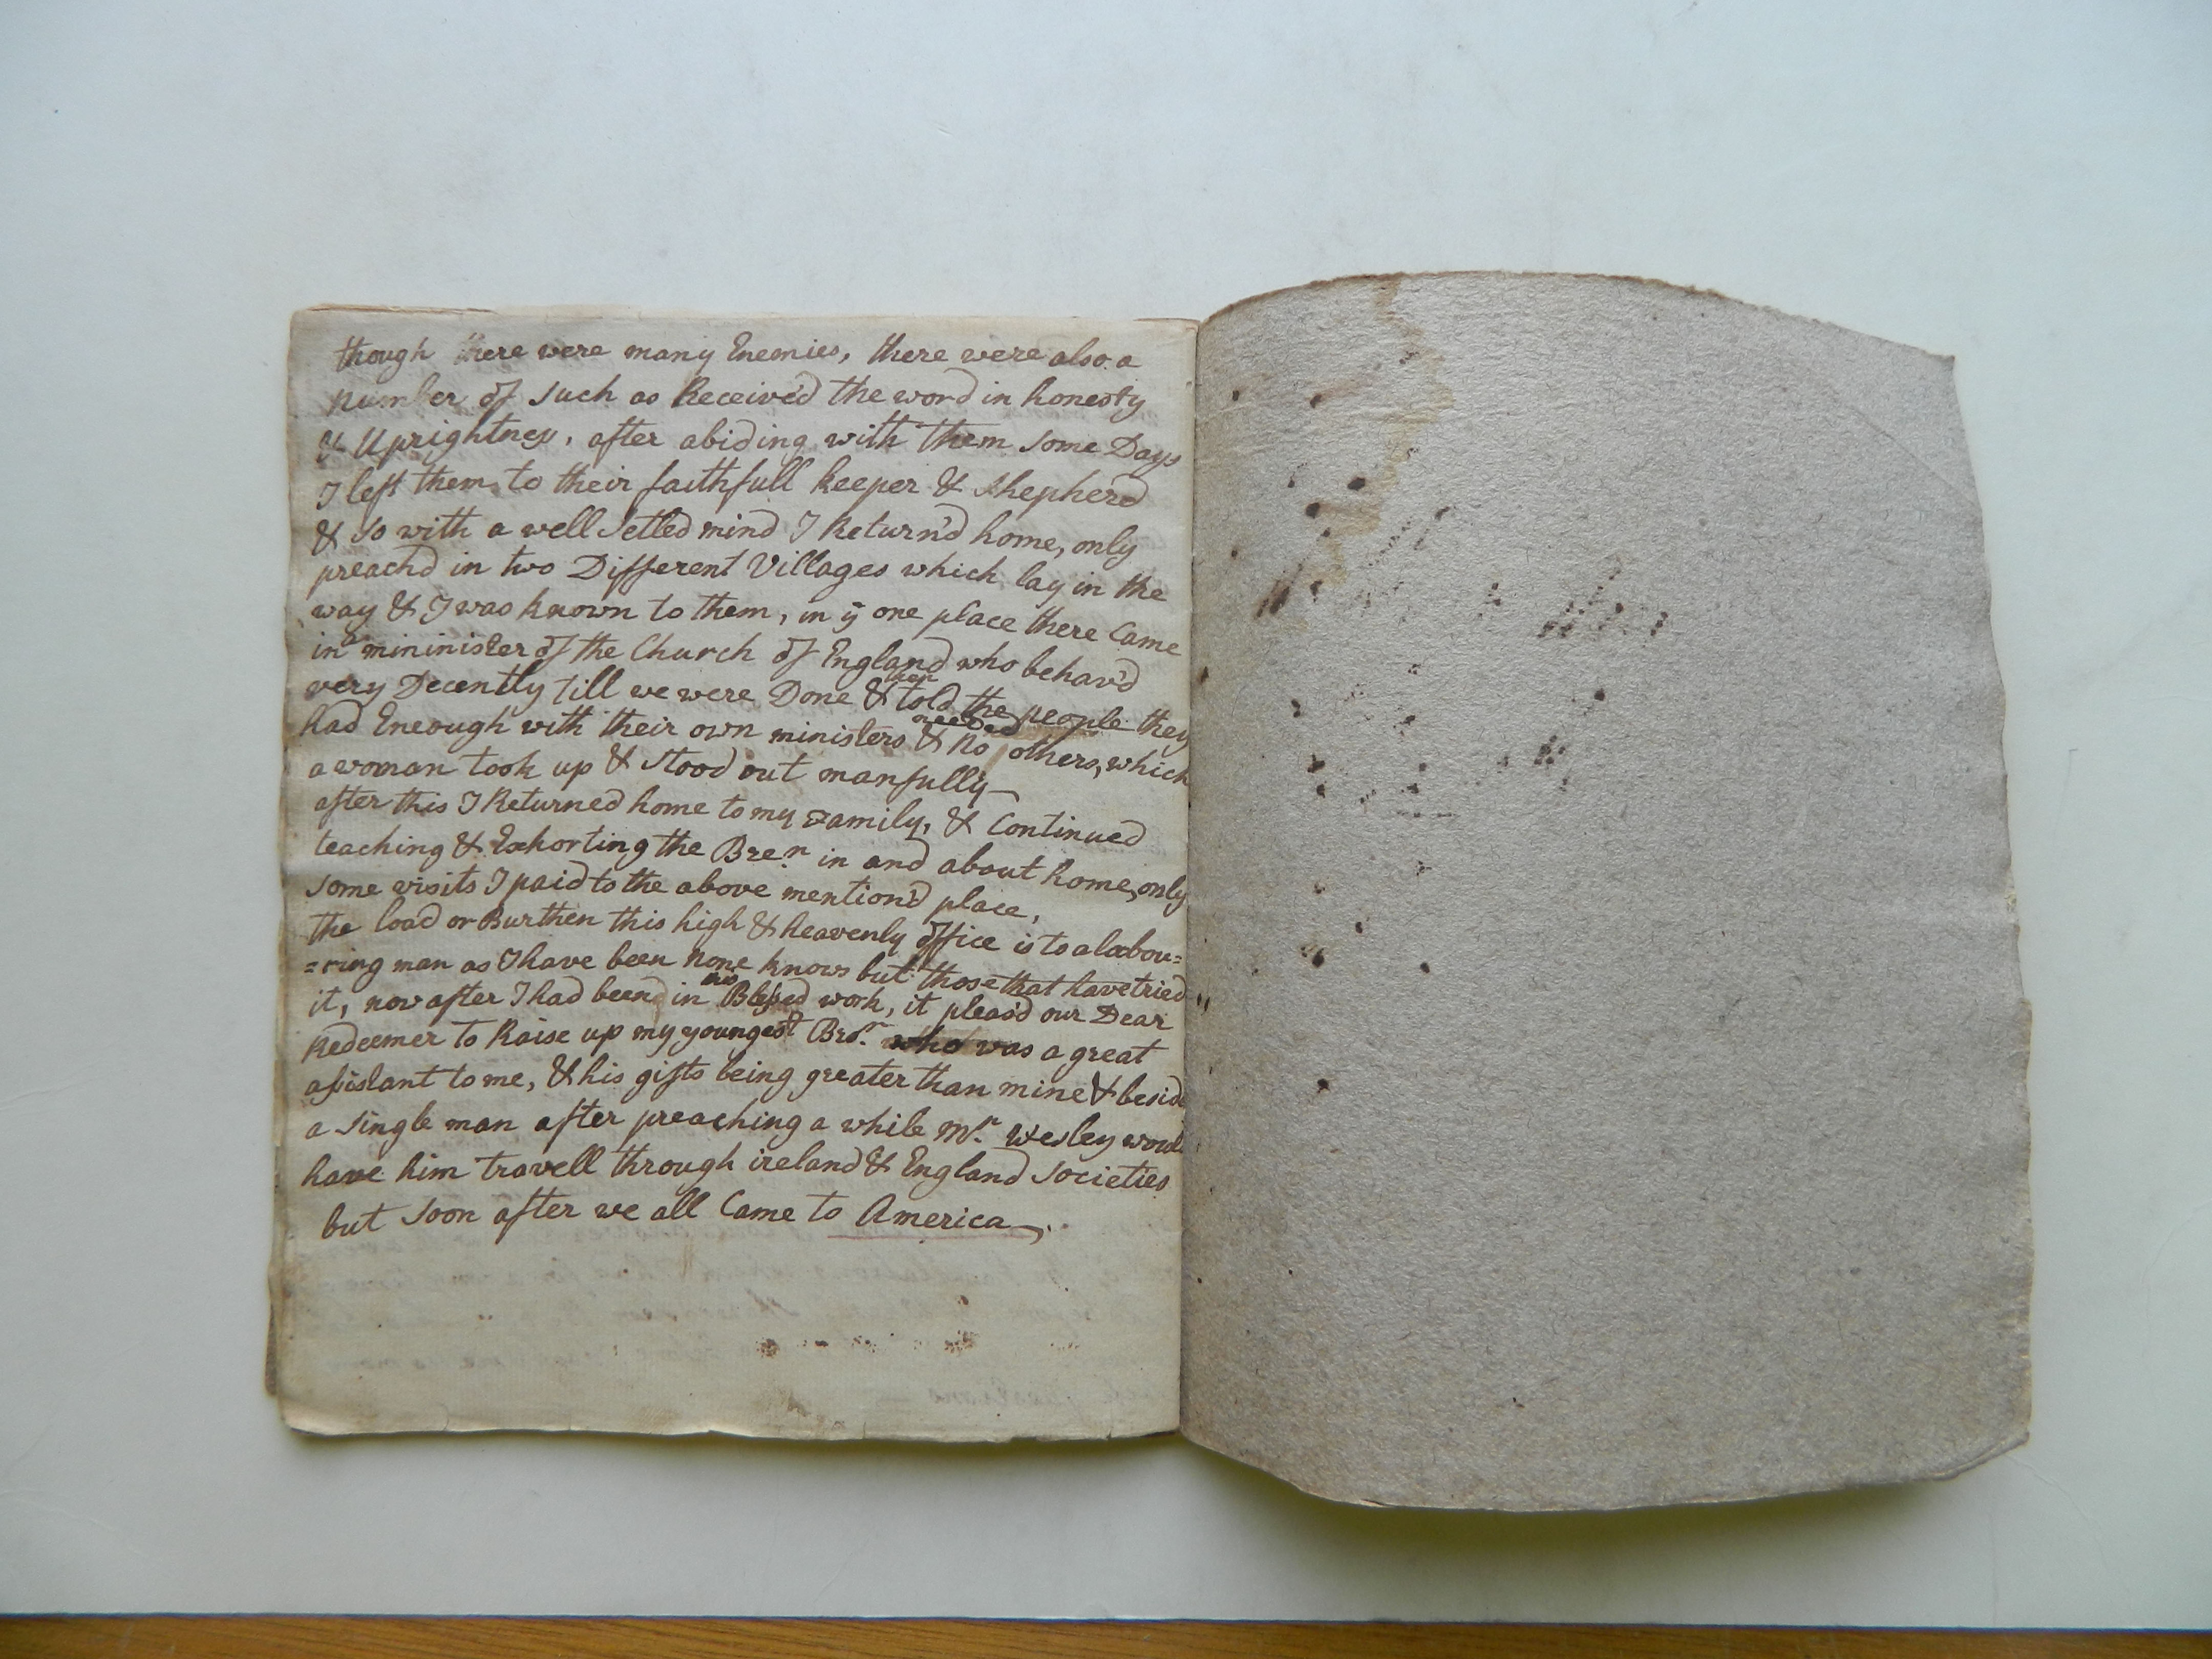 though there were many Enemies, there were also a
number of such as Receiv'd the word in honesty
& Uprightness, after abiding with them some Days
I left them to their faithfull keeper & shepherd
& so with a well setled mind I Return'd home, only
preach'd in two Different Villages which lay in the
way & I was known to them, in ÿ one place there Came
in a mininister of the Church of England who behav'd
very Decently till we were Done & then told the people they
had Eneough with their own ministers & needed no others, which
a woman took up & stood out manfully—
after this I Returned home to my Family, & Continued
teaching & Exhorting the Bren. in and about home, only
some visits I paid to the above mention'd place,
the load or Burthen this high & heavenly office is to a labou=
=ring man as I have been none knows but those that have tried
it, now after I had been in Blessed work, it pleas'd our Dear
Redeemer to Raise up my youngest Bror. who was a great
assistant to me, & his gifts being greater than mine & beside
a single man after preaching a while Mr. Wesley would
have him travell through ireland & England Societies
but soon after we all Came to America